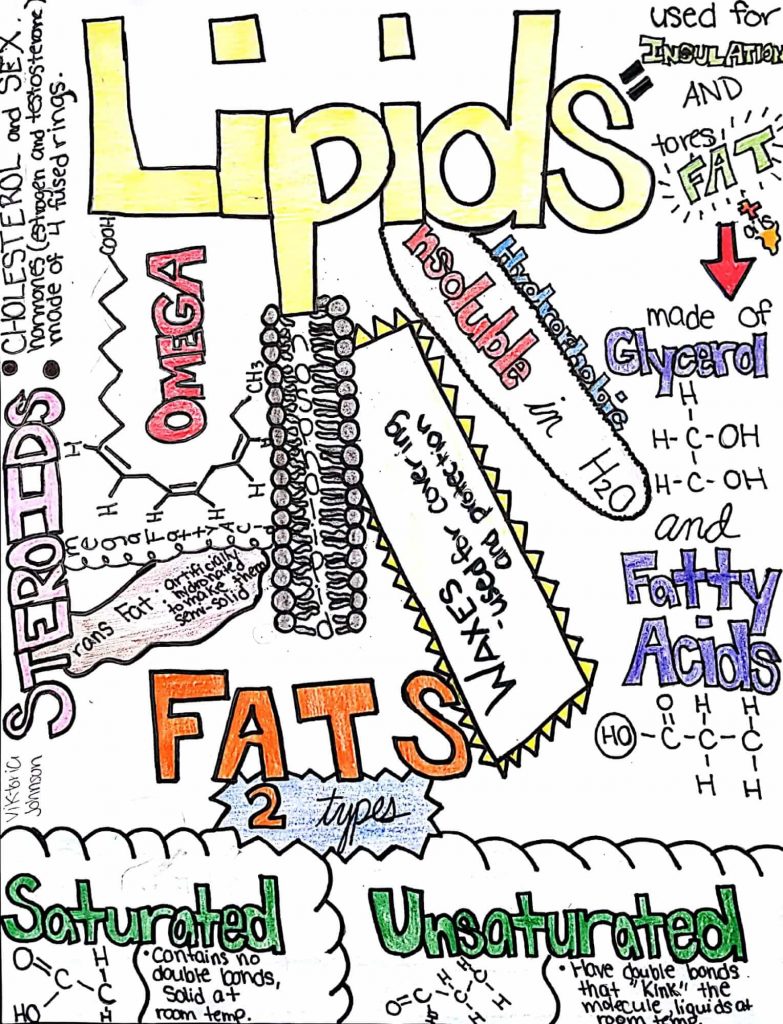 Lipids
used for
INSULATION
AND
tores
FAT
+
oils
made of
Glycerol
H
H-C-OH
H-C-OH
and
Fatty
Acids
O H H
HO-C-C-C
H H
nsoluble
in
H2O
Hydrophobic
WAXES
-used for covering
and protection
STEROIDS:
• CHOLESTEROL and SEX
hormones (estrogen and testosterone)
• made of 4 fused rings.
COOH
OMEGA
CH3
H
H
H
H
H
H
mega Fatty Aci
rans Fat:
• artificially
hydronated
to make them
semi-solid
FATS
2 types
Viktoria
Johnson
Saturated
O
H
C
C
HO
H
• Contains no
double bonds,
Solid at
room temp.
Unsaturated
O=C
H
C
H
C
H
• Have double bonds
that "Kink" the
molecule, liquids at
room temp